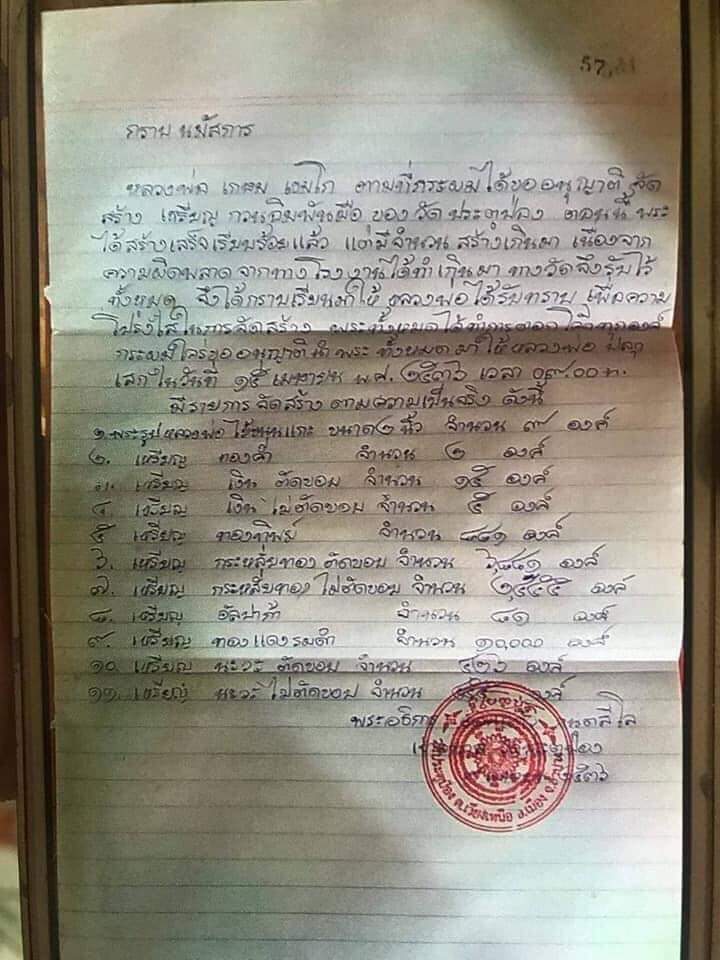 57,
กราบ นมัสการ
หลวงพ่อ เกษม เขมโก ตามที่กระผมได้ขออนุญาติ จัด
สร้าง เหรียญ กวนอิมพันมือ ของ วัด ประตูป่อง ตอนนี้ พระ
ได้สร้างเสร็จเรียบร้อยแล้ว แต่มีจำนวน สร้างเกินมา เนื่องจาก
ความผิดพลาด จากทางโรงงานได้ทำเกินมา ทางวัดจึงรับไว้
ทั้งหมด จึงได้กราบเรียนมาให้ หลวงพ่อ ได้รับทราบ เพื่อความ
โปร่งใสในการจัดสร้าง พระทั้งหมดได้ทำการตอกโค๊ตทุกองค์
กระผมใคร่ขออนุญาตินำ พระ ทั้งหมดมาให้หลวงพ่อ ปลุก
เสกในวันที่ ๑๕ เมษายน พ.ศ. ๒๕๓๖ เวลา ๐๙.๐๐ น.
มีรายการ จัดสร้าง ตามความเป็นจริง ดังนี้
๑. พระรูป หลวงพ่อ ไม้ขนุนแกะ ขนาด ๒ นิ้ว จำนวน ๙ องค์
๒. เหรียญ ทองคำ จำนวน ๒ องค์
๓. เหรียญ เงิน ตัดขอบ จำนวน ๑๕ องค์
๔. เหรียญ เงิน ไม่ตัดขอบ จำนวน ๕ องค์
๕ เหรียญ ทองทิพย์ จำนวน ๘๘๑ องค์
๖. เหรียญ กระหลั่ยทอง ตัดขอบ จำนวน องค์
๗. เหรียญ กระหลั่ยทอง ไม่ตัดขอบ จำนวน องค์
๘. เหรียญ อัลปาก้า จำนวน ๘๑ องค์
๙. เหรียญ ทองแดงรมดำ จำนวน ๑๐,๐๐๐ องค์
๑๐. เหรียญ นะวะ ตัดขอบ จำนวน องค์
๑๑. เหรียญ นะวะ ไม่ตัดขอบ จำนวน องค์
พระอธิการ
วัดประตูป่อง
๒๕๓๖
วัดประตูป่อง ต.เวียงเหนือ อ.เมือง จ.ลำปาง